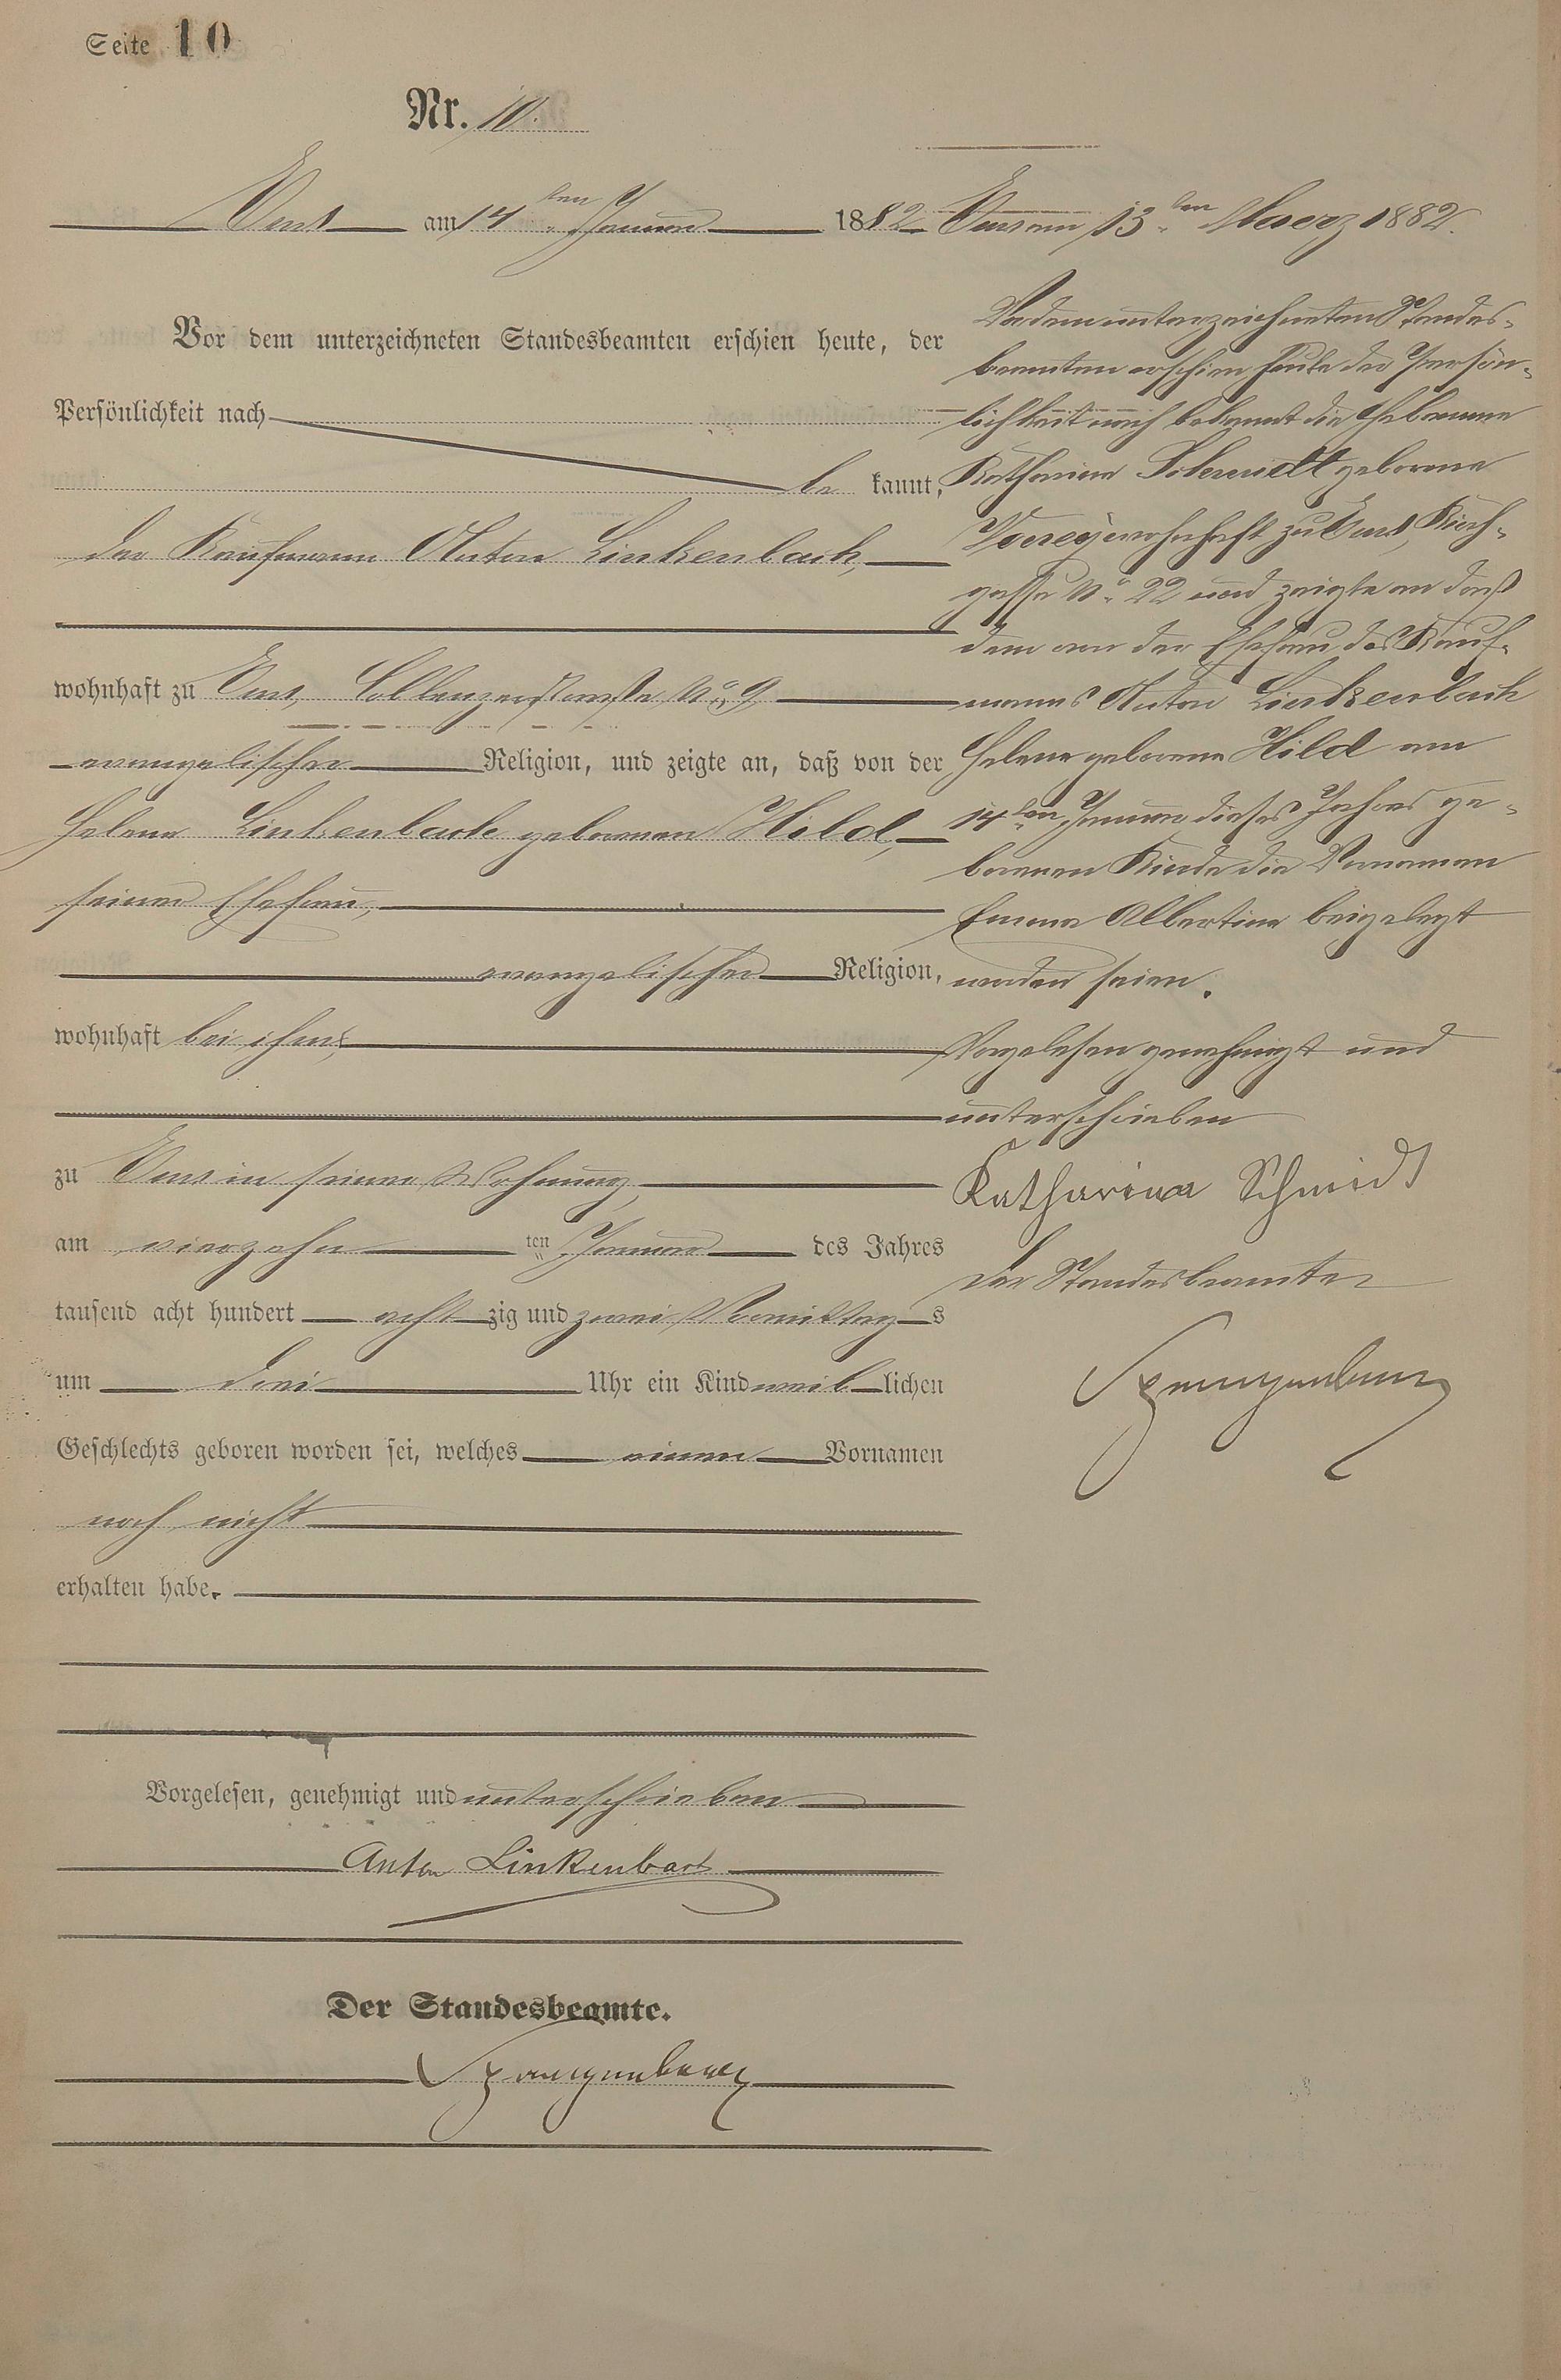 Seite 10
Nr. 10.
Ems am 14ten Januar 1882
Vor dem unterzeichneten Standesbeamten erschien heute, der
Persönlichkeit nach
be kannt,
der Kaufmann Anton Linkenbach,
wohnhaft zu Ems, Coblenzerstraße No 9,
evangelischer Religion, und zeigte an, daß von der
Helene Linkenbach geborenen Hild,
seiner Ehefrau,
evangelischer Religion,
wohnhaft bei ihm,
zu Ems in seiner Wohnung,
am vierzehn ten Januar des Jahres
tausend acht hundert acht zig und zwei Vormittag s
um drei Uhr ein Kind weib lichen
Geschlechts geboren worden sei, welches einen Vornamen
noch nicht
erhalten habe.
Vorgelesen, genehmigt und unterschrieben
Anton Linkenbach
Der Standesbeamte.
Spangenberg
Ems am 13ten Maerz 1882.
Vor dem unterzeichneten Standes-
beamten erschien heute der Persön-
lichkeit nach bekannt die Hebamme
Katharine Schmidt geborene
wohnhaft zu Ems, Kirch-
gasse No 22 und zeigte an daß
dem von der Ehefrau des Kauf-
manns Anton Linkenbach
Helene geborene Hild am
14ten Januar dieses Jahres ge-
borenen Kinde die Vornamen
Emma Albertine beigelegt
worden seien.
Vorgelesen genehmigt und
unterschrieben
Katharina Schmidt
Der Standesbeamte
Spangenberg